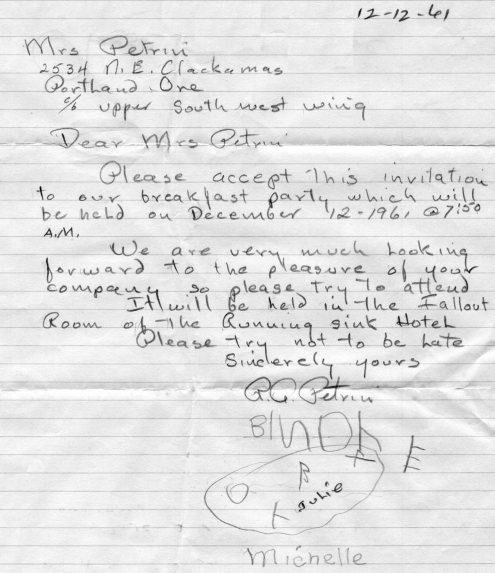 12-12-61
Mrs Petrini
2534 N.E. Clackamas
Portland. Ore
c/o upper South west wing
Dear Mrs Petrini
Please accept This invitation
to our breakfast party which will
be held on December 12-1961 @ 7:50
A.M.
We are very much Looking
forward to the pleasure of your
company so please try To attend
It will be held in The Fallout
Room of The Running sink Hotel
Please try not to be Late
Sincerely yours
P.C. Petrini
Julie
Michelle